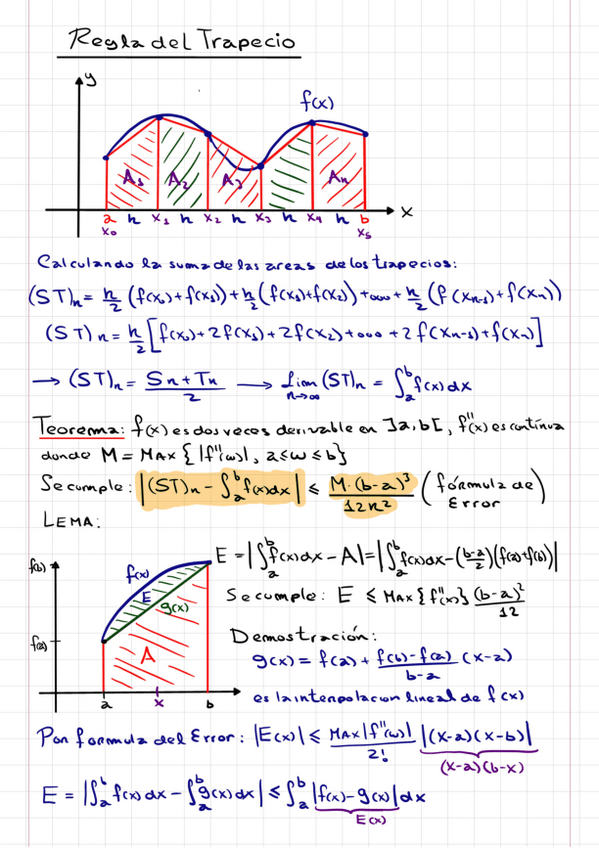 Regla del Trapecio
y
f(x)
A₁ A₂ A₃ Aₙ
a h x₁ h x₂ h x₃ h x₄ h b x
x₀ x₅
Calculando la suma de las areas de los trapecios:
(ST)ₙ = h/2 (f(x₀)+f(x₁)) + h/2 (f(x₁)+f(x₂)) + ... + h/2 (f(xₙ₋₁)+f(xₙ))
(ST)ₙ = h/2 [f(x₀)+2f(x₁)+2f(x₂)+...+2f(xₙ₋₁)+f(xₙ)]
→ (ST)ₙ = (Sₙ+Tₙ)/2 → Lim n→∞ (ST)ₙ = ∫ₐᵇ f(x)dx
Teorema: f(x) es dos veces derivable en ]a,b[, f''(x) es continua
donde M = MAX { |f''(ω)|, a≤ω≤b}
Se cumple: |(ST)ₙ - ∫ₐᵇ f(x)dx| ≤ M·(b-a)³/12n² (fórmula de Error)
LEMA:
f(b) f(x) E g(x) f(a) A a x b
E = |∫ₐᵇ f(x)dx - A| = |∫ₐᵇ f(x)dx - ((b-a)/2)(f(a)+f(b))|
Se cumple: E ≤ MAX{f''(x)} (b-a)²/12
Demostración:
g(x) = f(a) + (f(b)-f(a))/(b-a) (x-a)
es la interpolacion lineal de f(x)
Por formula del Error: |E(x)| ≤ MAX|f''(ω)|/2! |(x-a)(x-b)|
(x-a)(b-x)
E = |∫ₐᵇ f(x)dx - ∫ₐᵇ g(x)dx| ≤ ∫ₐᵇ |f(x)-g(x)|dx
E(x)